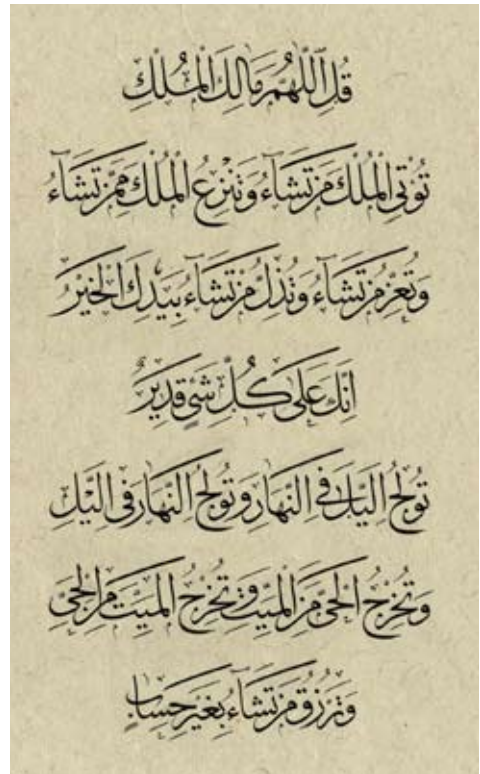 قُلِ اللّٰهُمَّ مَالِكَ الْمُلْكِ
تُؤْتِي الْمُلْكَ مَنْ تَشَاءُ وَتَنْزِعُ الْمُلْكَ مِمَّنْ تَشَاءُ
وَتُعِزُّ مَنْ تَشَاءُ وَتُذِلُّ مَنْ تَشَاءُ بِيَدِكَ الْخَيْرُ
اِنَّكَ عَلَى كُلِّ شَيْءٍ قَدِيرٌ
تُولِجُ الَّيْلَ فِي النَّهَارِ وَتُولِجُ النَّهَارَ فِي الَّيْلِ
وَتُخْرِجُ الْحَيَّ مِنَ الْمَيِّتِ وَتُخْرِجُ الْمَيِّتَ مِنَ الْحَيِّ
وَتَرْزُقُ مَنْ تَشَاءُ بِغَيْرِ حِسَابٍ